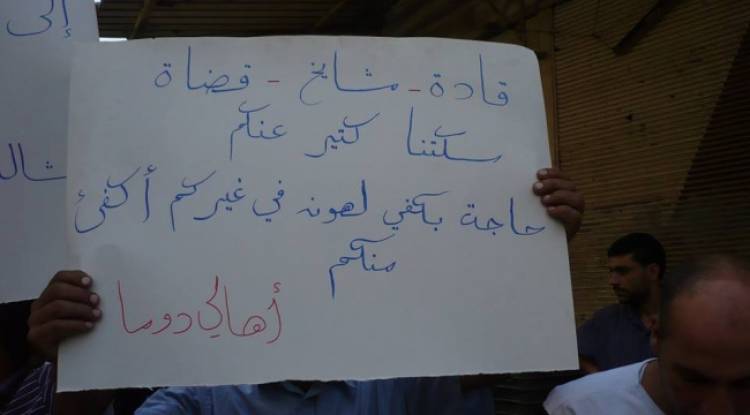 قادة - مشايخ - قضاة
سكتنا كتير عنكم
حاجة بكفي لهون في غيركم أكفئ
منكم
أهالي دوما
إلى